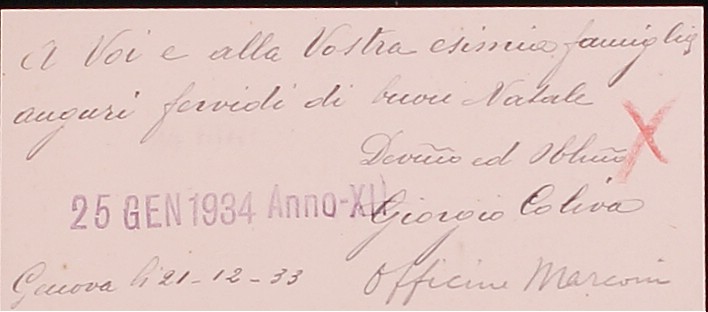 A Voi e alla Vostra esimia famiglia
auguri fervidi di buon Natale
Dev.mo ed Obb.mo
X
25 GEN 1934 Anno-XII
Giorgio Coliva
Genova li 21-12-33
Officine Marconi